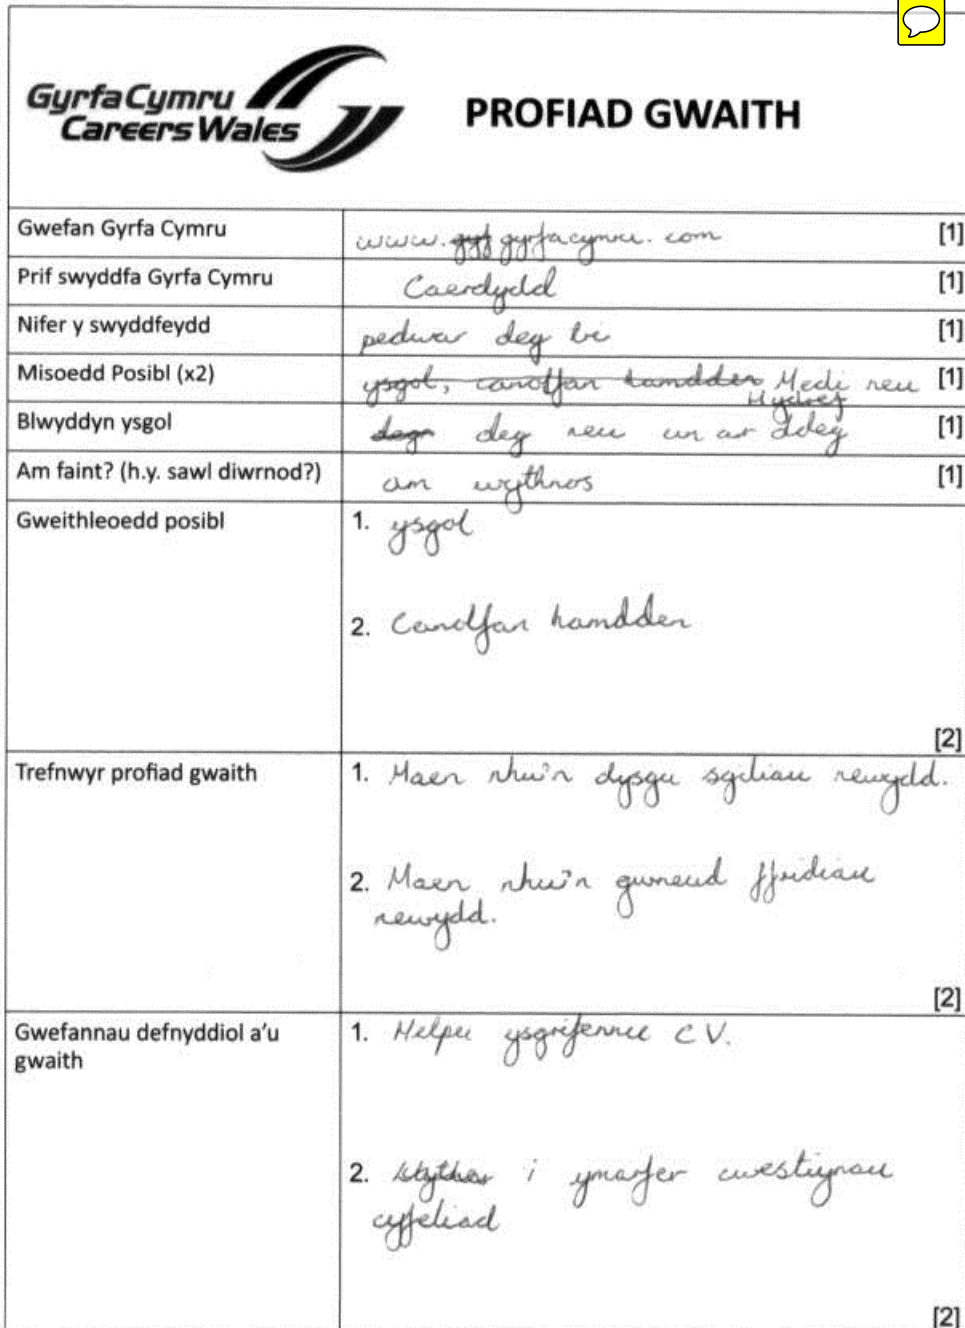 Gyrfa Cymru
Careers Wales
PROFIAD GWAITH
Gwefan Gyrfa Cymru
www.gyf gyrfacymru.com [1]
Prif swyddfa Gyrfa Cymru
Caerdydd [1]
Nifer y swyddfeydd
pedwar deg tri [1]
Misoedd Posibl (x2)
ysgol, canolfan hamdden Medi neu [1]
Hydref
Blwyddyn ysgol
deg neu un ar ddeg [1]
Am faint? (h.y. sawl diwrnod?)
am wythnos [1]
Gweithleoedd posibl
1. ysgol
2. Canolfan hamdden
[2]
Trefnwyr profiad gwaith
1. Maen nhw'n dysgu sgiliau newydd.
2. Maen nhw'n gwneud ffridiau
newydd.
[2]
Gwefannau defnyddiol a'u
gwaith
1. Helpu ysgrifennu CV.
2. i ymarfer cwestiynau
cyfeliad
[2]